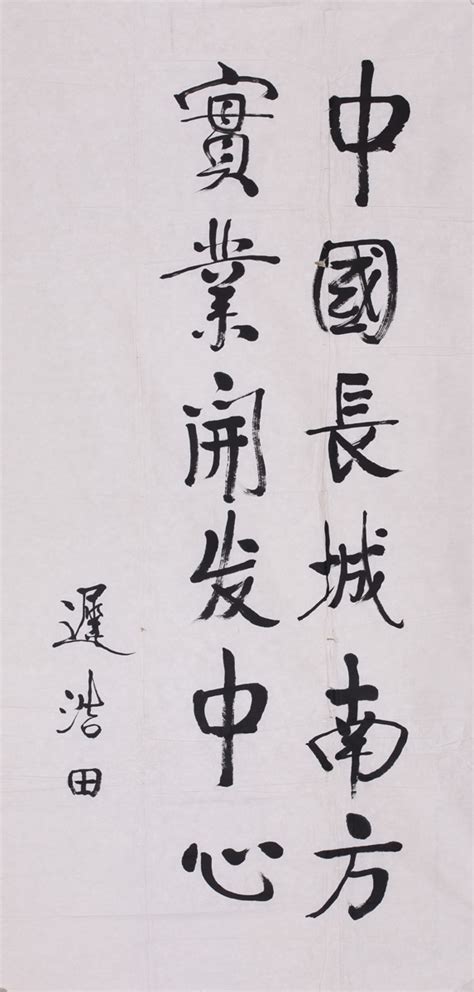 中國長城南方
實業開发中心
遲浩田